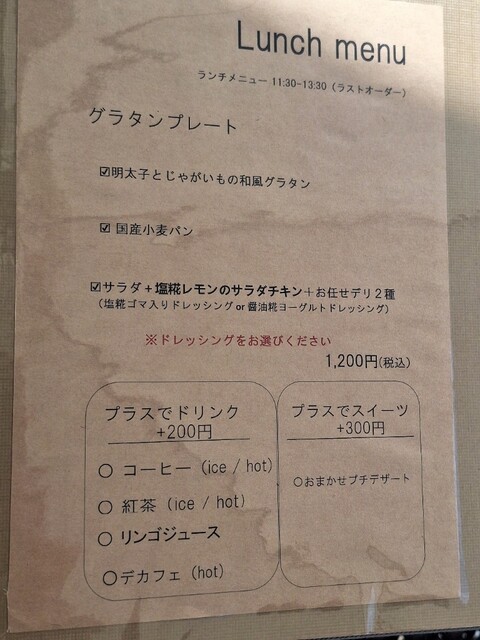 Lunch menu
ランチメニュー 11:30-13:30（ラストオーダー）
グラタンプレート
☑明太子とじゃがいもの和風グラタン
☑ 国産小麦パン
☑サラダ＋塩糀レモンのサラダチキン＋お任せデリ２種
（塩糀ゴマ入りドレッシング or 醤油糀ヨーグルトドレッシング）
※ドレッシングをお選びください
1,200円(税込)
プラスでドリンク
+200円
○ コーヒー（ice / hot)
○ 紅茶（ice / hot)
○ リンゴジュース
○デカフェ（hot)
プラスでスイーツ
+300円
○おまかせプチデザート